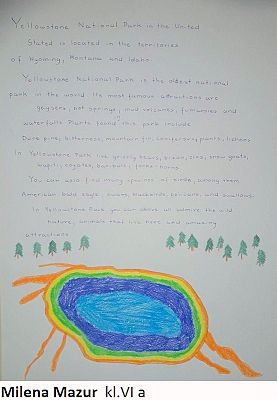 Yellowstone National Park in the United
Stated is located in the territories
of Wyoming, Montana and Idaho.
Yellowstone National Park is the oldest national
park in the world. Its most famous attractions are
geysers, hot springs, mud volcanos, fumaroles and
waterfalls. Plants found this park include
pine, bitterness, mountain fir, coniferous plants, lichens
In Yellowstone Park live grizzly bears, bison, snow goats,
wapiti, coyotes,
You can also find many species of birds, among them
American bald eagle, swans, blackbirds, pelicans, and swallows.
In Yellowstone Park you can above all admire the wild
nature, animals that live here and amazing
attractions
Milena Mazur kl.VI a